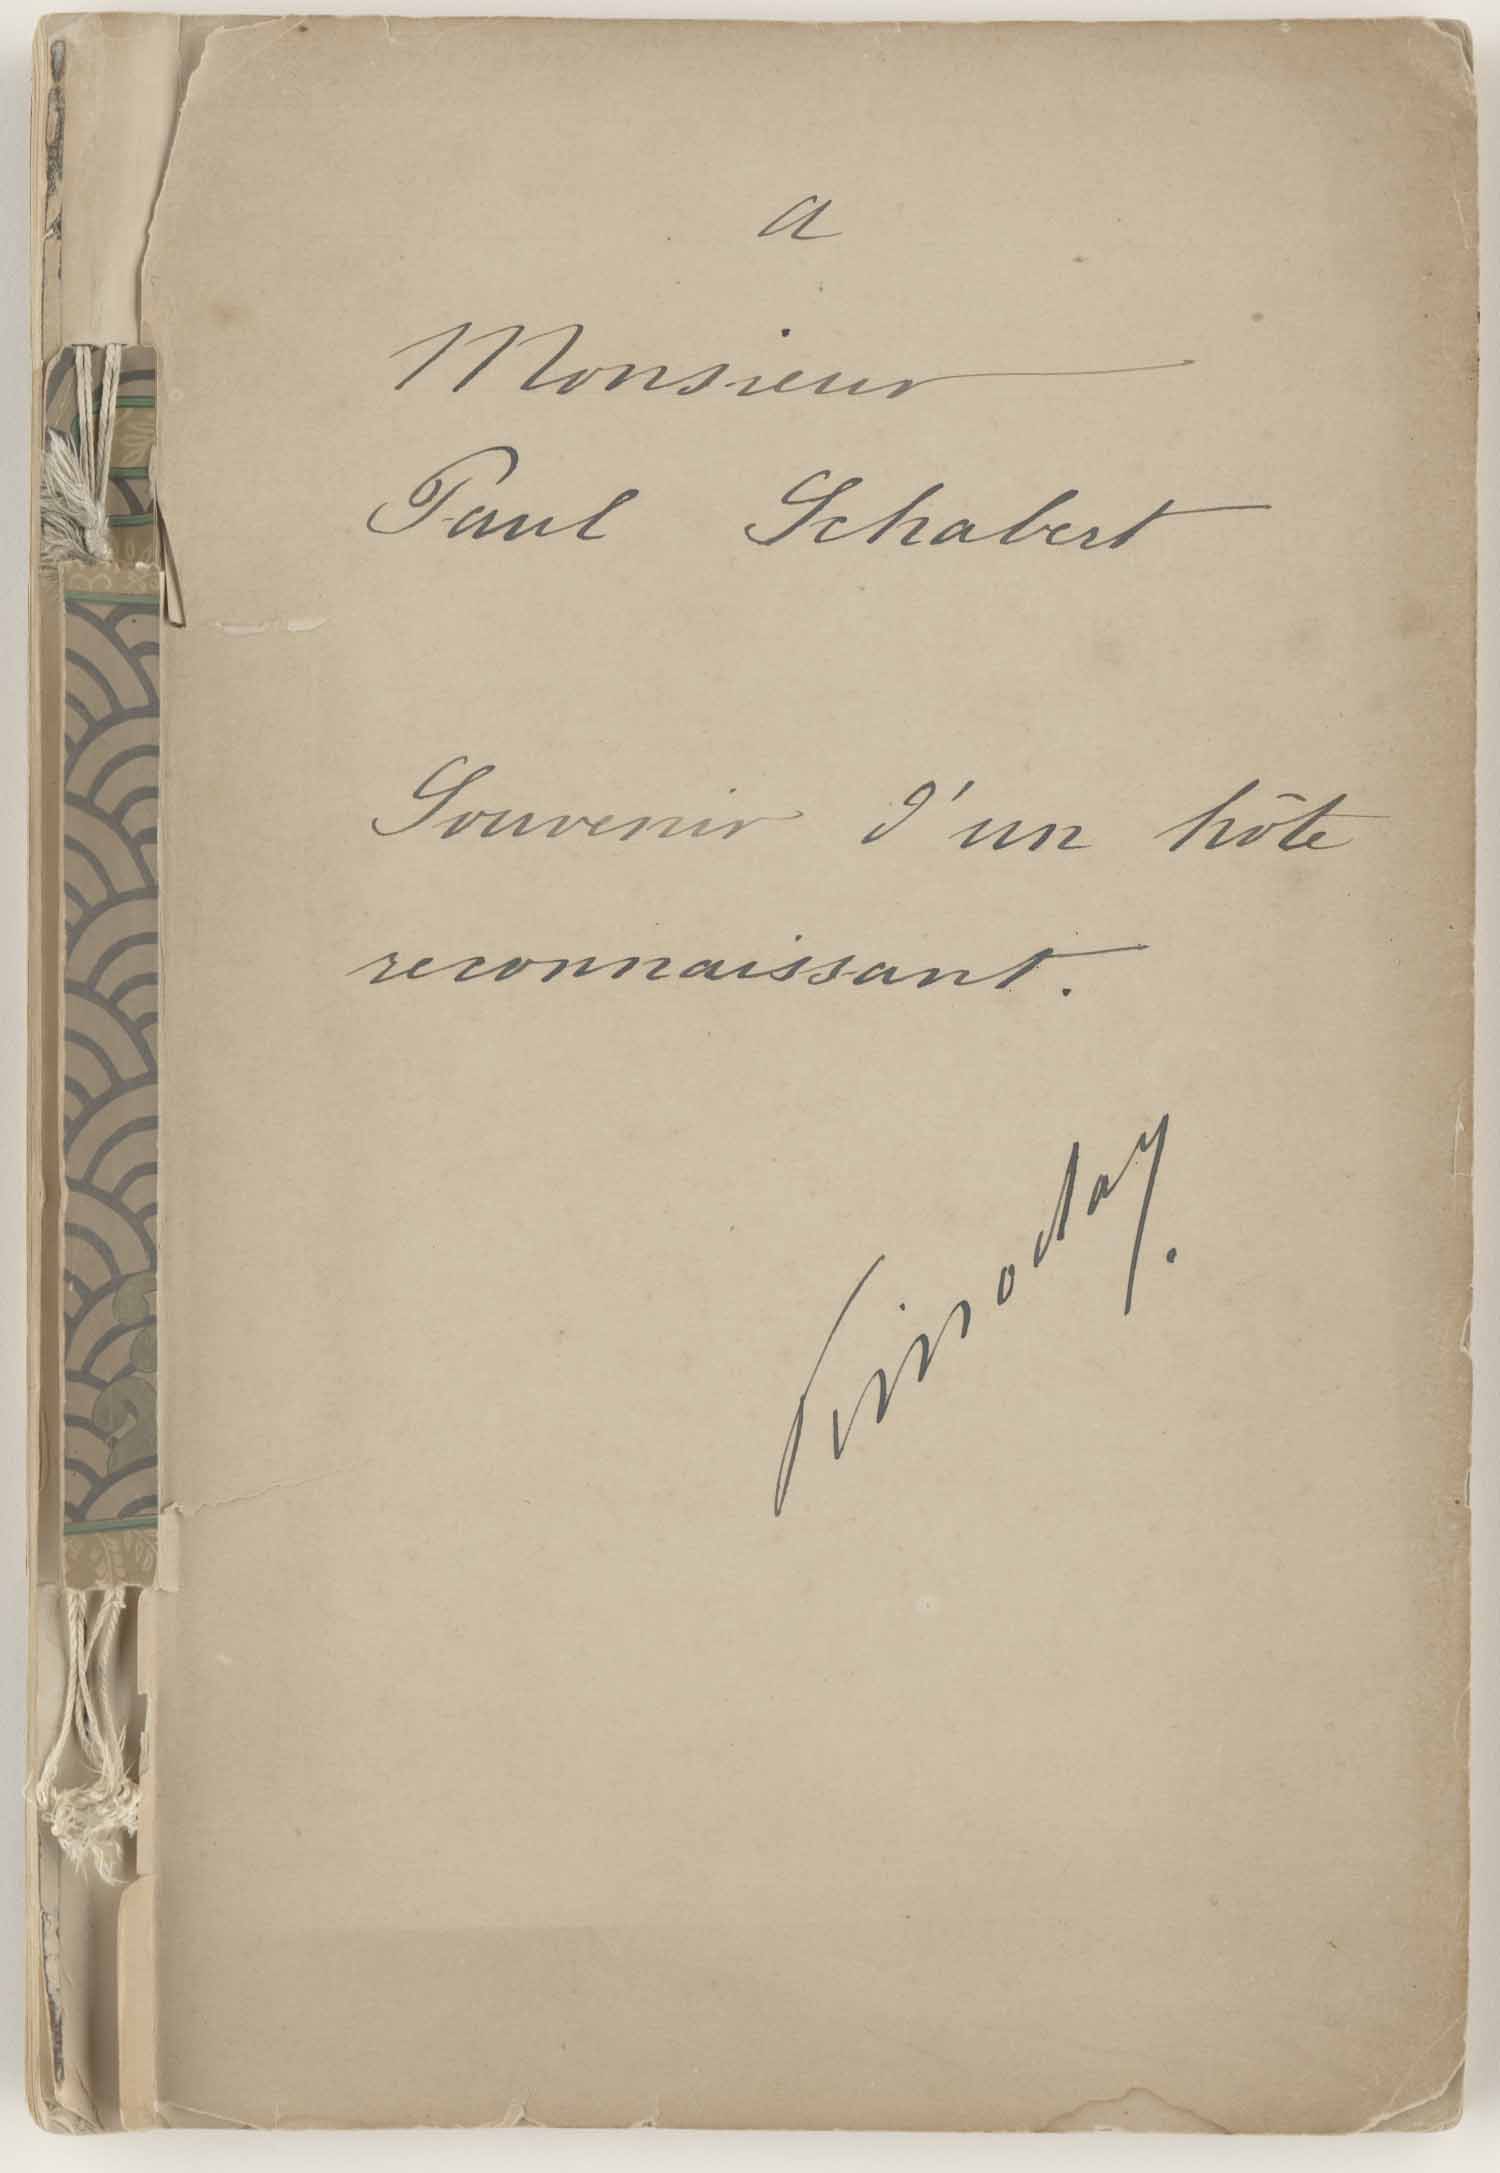 a
Monsieur
Paul Schabert
Souvenir d'un hôte
reconnaissant.